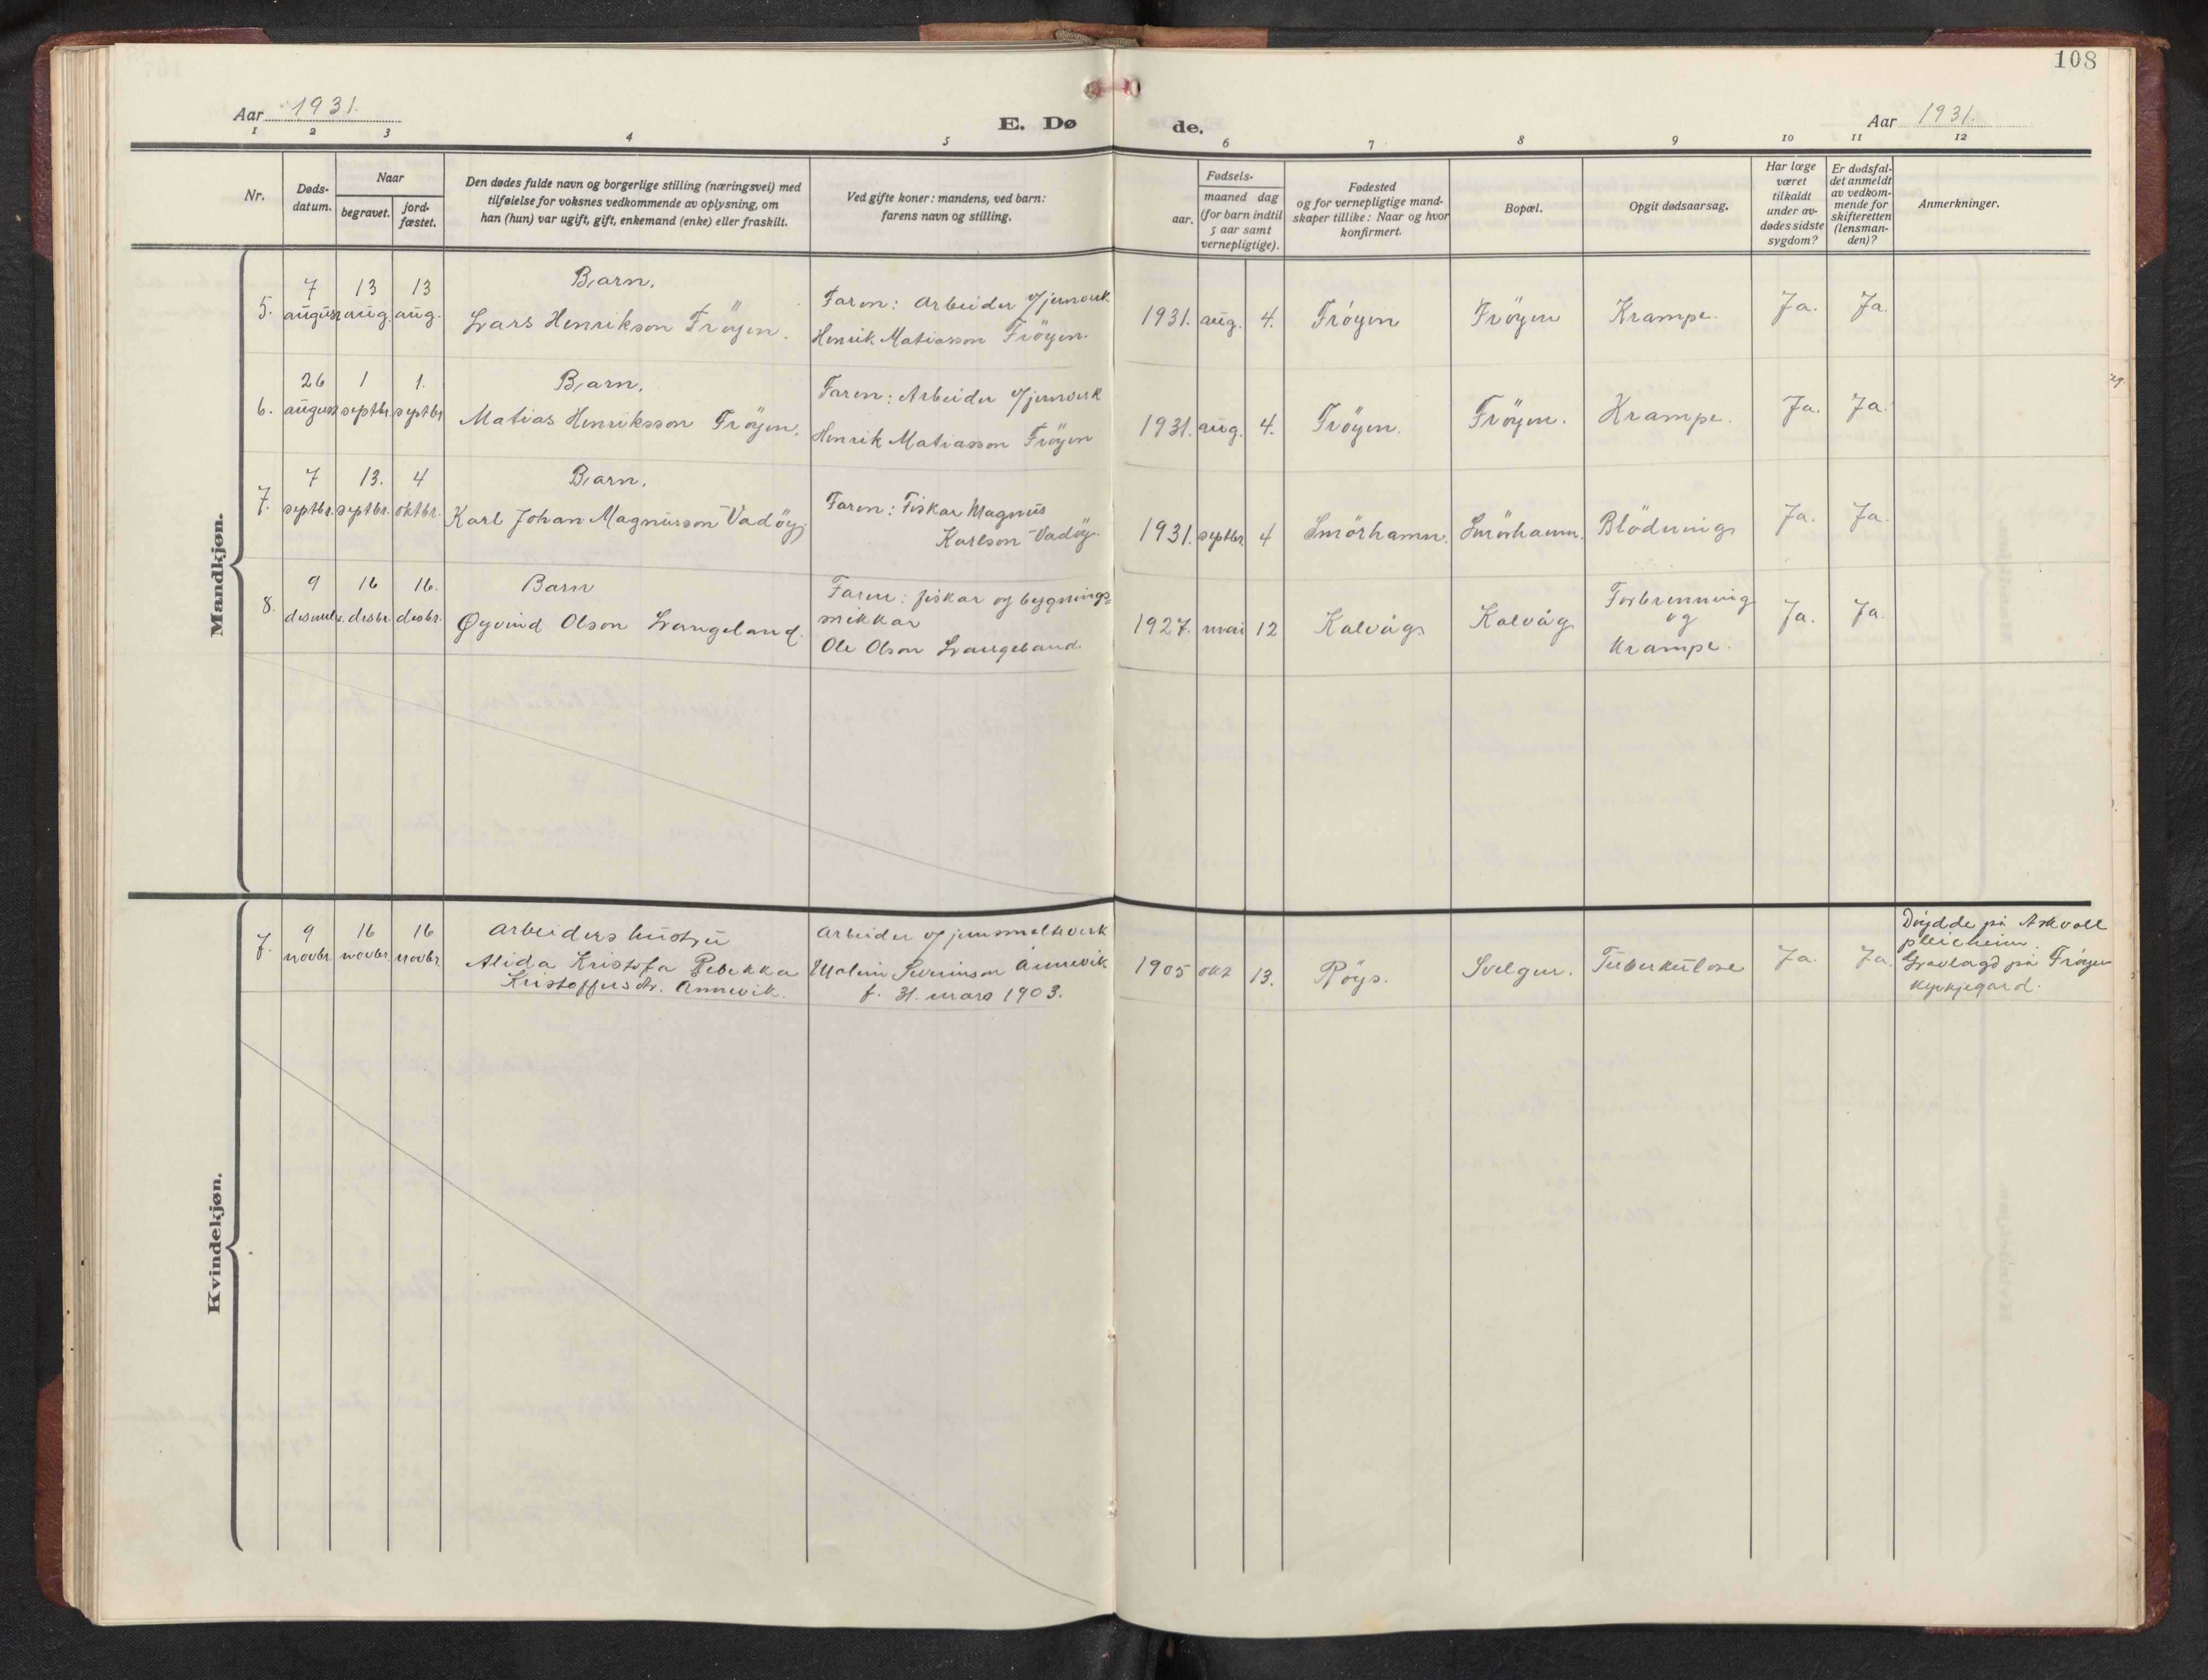 108
Aar 1931.
E. Døde.
Aar 1931.
1 2 3 4 5 6 7 8 9 10 11 12
Nr.
Døds-
datum.
Naar
begravet.
jord-
fæstet.
Den dødes fulde navn og borgerlige stilling (næringsvei) med
tilføielse for voksnes vedkommende av oplysning, om
han (hun) var ugift, gift, enkemand (enke) eller fraskilt.
Ved gifte koner: mandens, ved barn:
farens navn og stilling.
Fødsels-
aar.
maaned dag
(for barn indtil
5 aar samt
vernepligtige).
Fødested
og for vernepligtige mand-
skaper tillike: Naar og hvor
konfirmert.
Bopæl.
Opgit dødsaarsag.
Har læge
været
tilkaldt
under av-
dødes sidste
sygdom?
Er dødsfal-
det anmeldt
av vedkom-
mende for
skifteretten
(lensman-
den)?
Anmerkninger.
Mandkjøn.
5.
7
august
13
aug.
13
aug.
Barn.
Lars Henrikson Fröyen.
Faren: Arbeider v/jernverk
Henrik Matiasson Fröyen.
1931. aug. 4. Fröyen Fröyen Krampe. Ja. Ja.
6.
26
august
1
septbr.
1.
septbr
Barn.
Matias Henriksson Fröyen.
Faren: Arbeider v/jernverk
Henrik Matiasson Fröyen
1931. aug. 4. Fröyen. Fröyen. Krampe. Ja. Ja.
7.
7
septbr.
13.
septbr.
4
oktbr.
Barn.
Karl Johan Magnusson Vadöy
Faren: Fiskar Magnus
Karlson Vadöy.
1931. septbr 4 Smörhamn. Smörhamn. Blödning Ja. Ja.
8.
9
desmbr.
16
desbr.
16.
desbr.
Barn
Øyvind Olson Langeland.
Faren: fiskar og bygnings=
snikkar
Ole Olson Langeland.
1927. mai 12 Kalvåg Kalvåg
Forbrenning
og
Krampe.
Ja. Ja.
Kvindekjøn.
7.
9
novbr.
16
novbr.
16
novbr.
Arbeiders hustru
Alida Kristofa Rebekka
Kristoffersdtr. Annevik.
Arbeider v/jernsmelteverk
Malvin Severinson Annevik
f. 31. mars 1903.
1905 okt 13. Röys. Svelgen. Tuberkulose Ja. Ja.
Döydde på Askvoll
pleieheim.
Gravlagd på Fröyen
kyrkjegard.